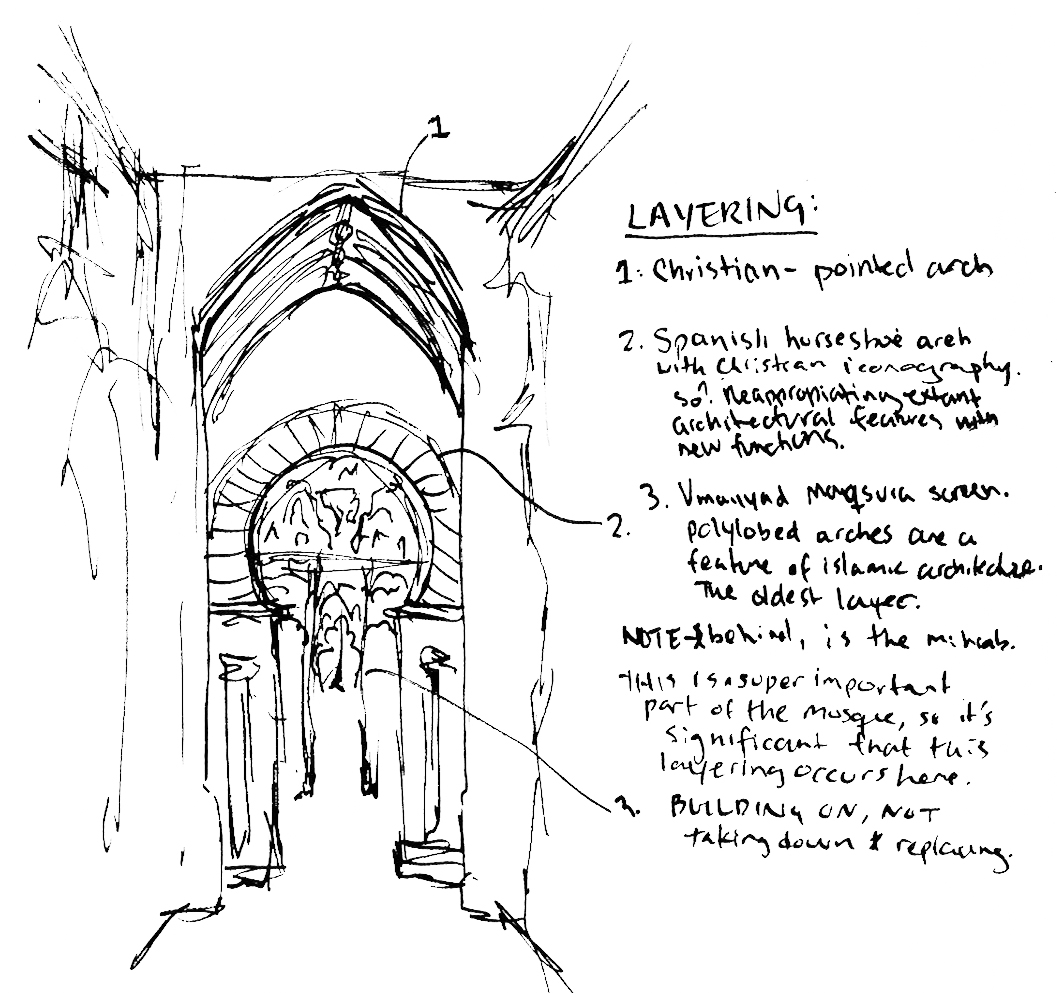 1
LAYERING:
1: Christian- pointed arch
2. Spanish horseshoe arch
with Christian iconography.
so? Reappropiating extant
architectural features with
new functions.
3. Umayyad Maqsura screen.
2.
polylobed arches are a
feature of islamic architecture.
The oldest layer.
NOTE- behind, is the mihrab.
THIS is a super important
part of the mosque, so it's
significant that this
layering occurs here.
3.
BUILDING ON, NOT
taking down & replacing.